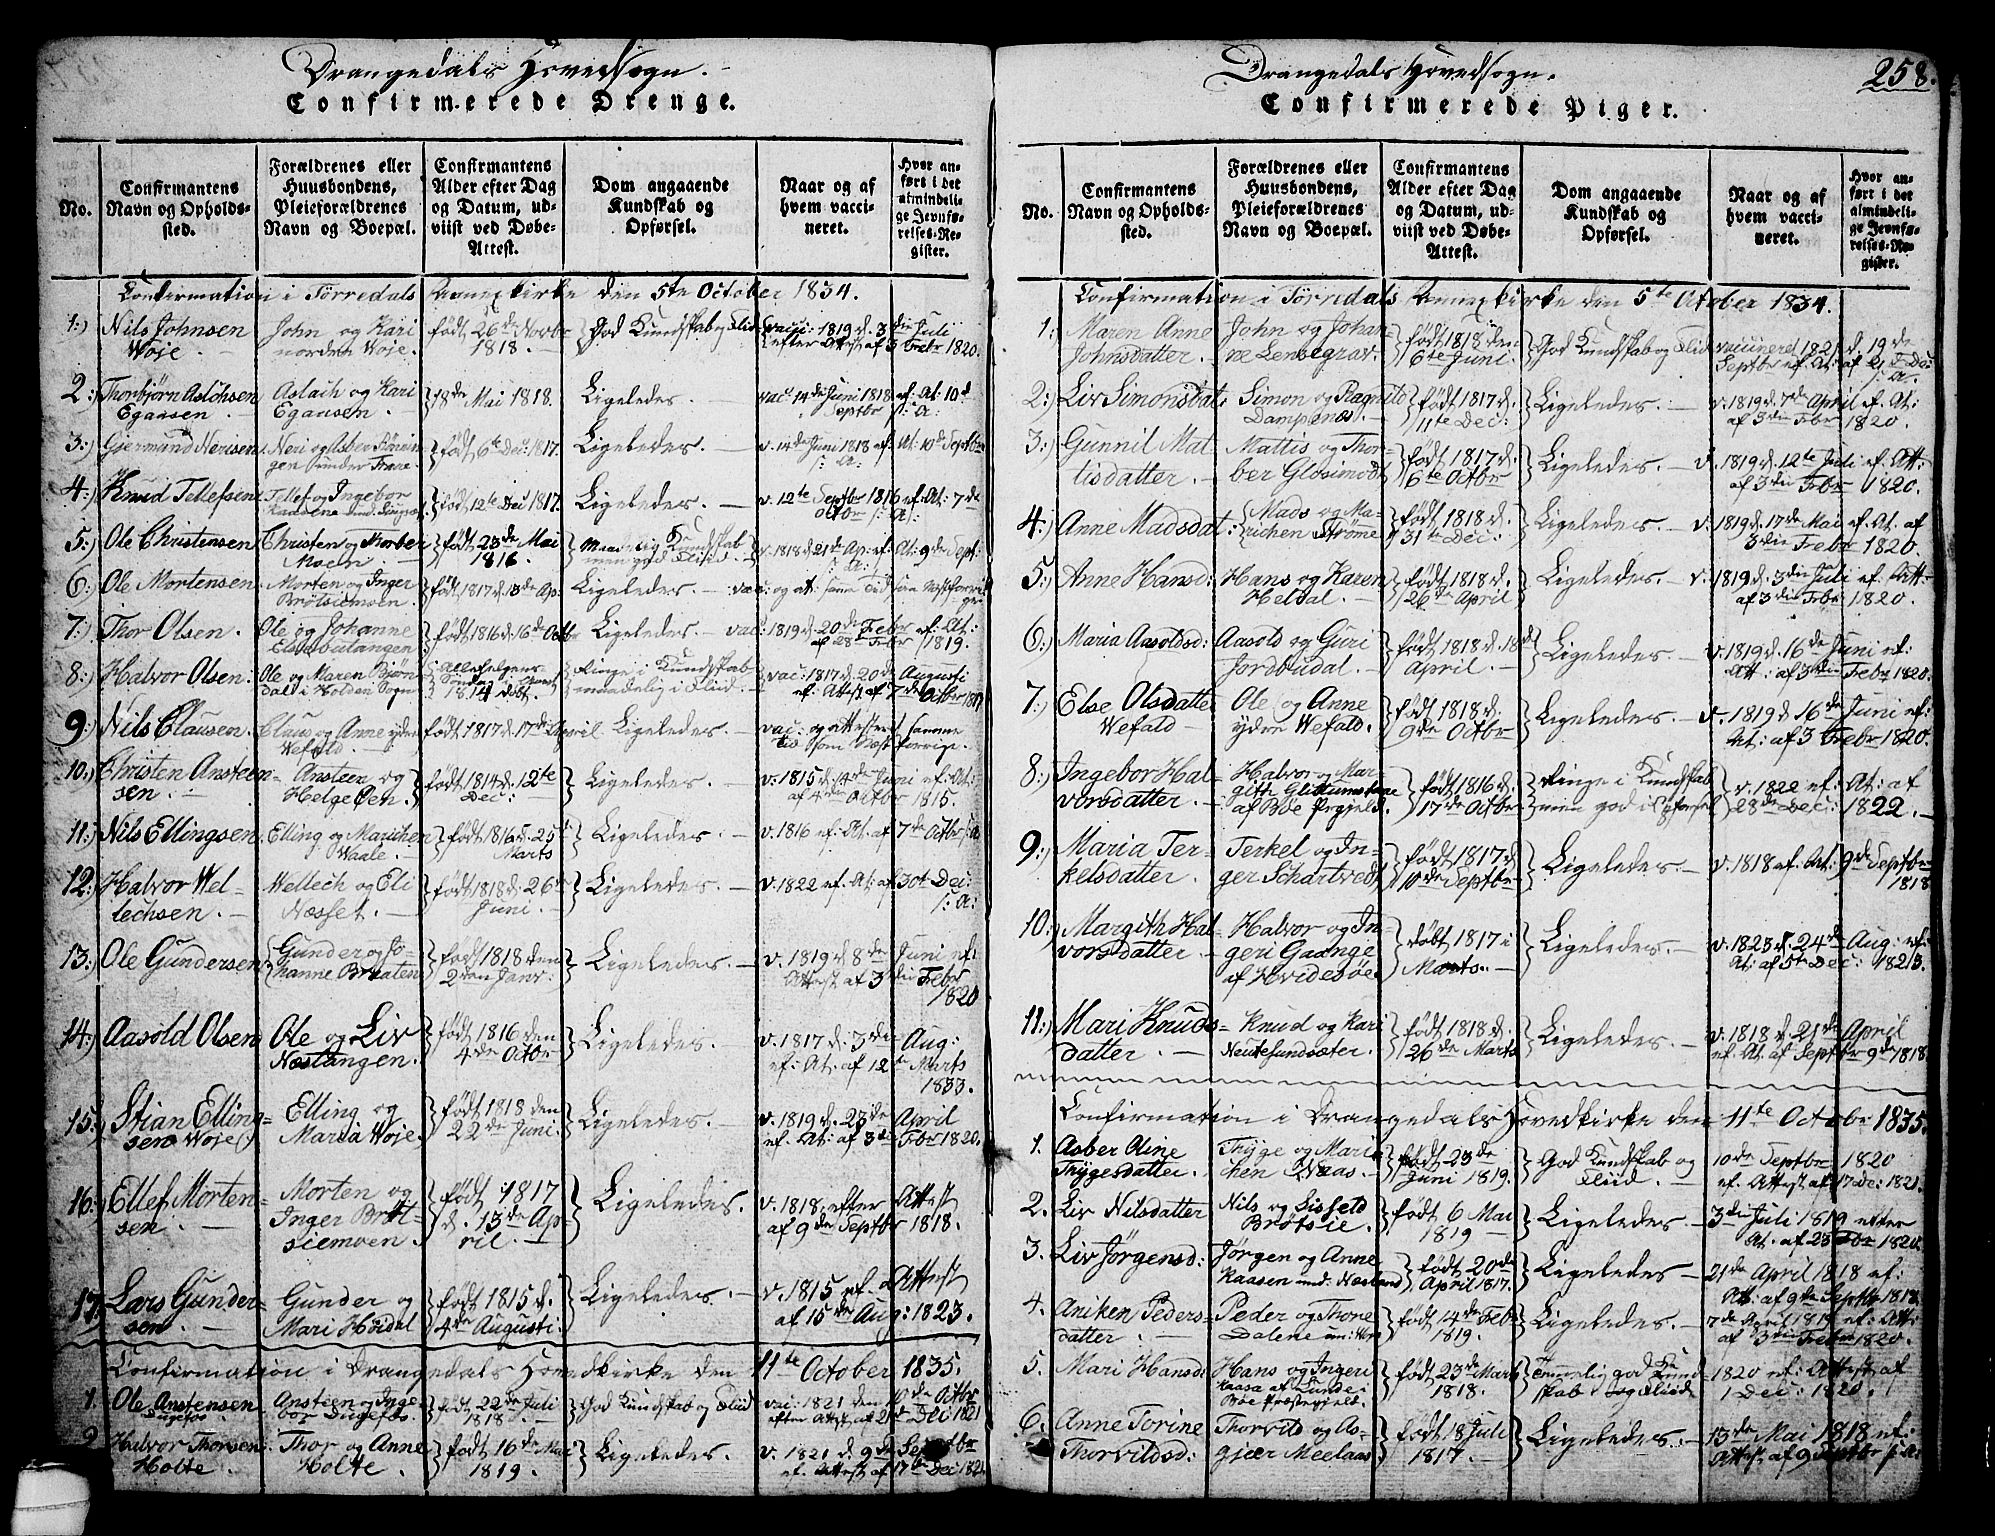 Drangedals Hovedsogn.
Confirmerede Drenge.
No.
Confirmantens Navn og Opholdssted.
Forældrenes eller Huusbondens, Pleieforældrenes Navn og Boepæl.
Confirmantens Alder efter Dag og Datum, udviist ved Døbe-Attest.
Dom angaaende Kundskab og Opførsel.
Naar og af hvem vaccineret.
Hvor anført i det almindelige Jevnførelses-Register.
Confirmation i Tørredals Annexkirke den 5te October 1834.
1:) Nils Johnsen Woje. John og Kari norden Woje. født 26de Novbr 1818. God Kundskab og Fliid vacc: 1819 d. 3die Juli efter Attest af 3 Febr 1820.
2:) Thorbjørn Aslachsen Egansen. Aslach og Kari Egansen. 18de Mai 1818. Ligeledes. vac: 14de Juni 1818 ef: At: 10d Septbr s: A:
3:) Gjermund Nerisen Neri og Asber under født 6te Dec: 1817. Ligeledes. v. 14de Juni 1818 ef: At: 10d Septbr s: A:
4:) Knud Tellefsen Tellef og Ingebor Kaasene und. født 12te Dec 1817. Ligeledes. v. 12te Septbr 1816 ef: At: 7de Octbr s: A:
5:) Ole Christensen Christen og Norber Moen født 23de Mai 1816. Maadelig Kundskab men god Fliid. v. 1818 d. 21de Ap: ef: At: 9de Sept: s: A:
6:) Ole Mortensen Morten og Inger Brøtsiemoen. født 1817 d. 13de Ap: Ligeledes. vac: og at: samme Tid som Næstforrige
7:) Thor Olsen. Ole og Johanne født 1816 d. 16de Octbr Ligeledes. vac: 1819 d. 20de Febr ef: At: af 28de Febr 1819.
8:) Halvor Olsen: Ole og Maren Bjørndal i Holden Sogn Allehelgens Søndag 1814 døbt. Ringe i Kundskab maadelig i Fliid. vac: 1817 d. 20de Augusti ef: Attest af 7de Octbr 1817
9:) Nils Clausen. Claus og Anne ydre Wefald. født 1817 d. 17de April Ligeledes. vac: og attesteret samme Tid som Næstforrige.
10:) Christen Ansteensen. Ansteen og Helge Øen. født 1814 d. 12te Dec: Ligeledes. v. 1815 d. 14de Juni ef: At: af 4de Octbr 1815.
11:) Nils Ellingsen. Elling og Marichen Waale. født 1816 d. 25de Marts Ligeledes. v. 1816 ef: At. af 7de Octbr s: A:
12:) Halvor Wellechsen. Wellech og Eli Næsset. født 1818 d. 26de Juni. Ligeledes. v. 1822 ef: At: af 30t Dec: s: A:
13:) Ole Gundersen Gunder og Johanne Braaten født 1818 den 2den Janr: Ligeledes. v. 1819 d. 8de Juni ef: Attest af 3die Febr 1820
14:) Aasold Olsen Ole og Liv Næstangen. født 1816 den 4de Octbr Ligeledes. v. 1817 d. 3de Aug: ef: At: af 12te Marts 1833.
15:) Stian Ellingsen Woje Elling og Maria Woje. født 1818 den 22de Juni. Ligeledes. v. 1819 d. 23de April ef. At: af 3die Febr 1820.
16:) Ellef Mortensen. Morten og Inger Brøtsiemoen. født 1817 d. 13de April. Ligeledes. v. 1818 efter Attest af 9de Septbr 1818.
17:) Lars Gundersen. Gunder og Mari født 1815 d. 4de Augusti. Ligeledes. v. 1815 ef. Attest af 15de Aug: 1823.
Confirmation i Drangedals Hovedkirke den 11te October 1835.
1. Ole Anstensen Dugefos Ansteen og Ingebor Dugefos. født 22de Juli 1818. God Kundskab og Fliid vac: 1821 den 10de Octbr efter Attest af 21de Dec 1821
2 Halvor Thorsen Holte. Thor og Anne Holte. født 16de Mai 1819. Ligeledes. v. 1821 d. 9de Septbr ef. Attest af 17de Dec: 1821.
Drangedals Hovedsogn.
258.
Confirmerede Piger.
No.
Confirmantens Navn og Opholdssted.
Forældrenes eller Huusbondens, Pleieforældrenes Navn og Boepæl.
Confirmantens Alder efter Dag og Datum, udviist ved Døbe-Attest.
Dom angaaende Kundskab og Opførsel.
Naar og af hvem vaccineret.
Hvor anført i det almindelige Jevnførelses-Register.
Confirmation i Tørredals Annexkirke den 5te October 1834.
1: Maren Anne Johnsdatter. John og Johanne Lensegrav. født 1818 den 6te Juni. God Kundskab og Fliid vaccineret 1821 d. 19de Septbr ef. At: af 21de Dec: s: A.
2:) Liv Simonsdat: Simon og Ragnild Dampenæs. født 1817 d. 11te Dec: Ligeledes. v. 1819 d. 7de April ef. At: af 3die Febr 1820.
3:) Gunnil Mattisdatter. Mattis og Thorber Glosimodt født 1817 d. 6te Octbr Ligeledes. v. 1819 d. 12te Juli ef. At: af 3die Febr 1820.
4:) Anne Madsdat: Mads og Marichen Strømme født 1818 d. 31te Dec: Ligeledes. v. 1819 d. 17de Mai ef. At. af 3die Febr 1820.
5:) Anne Hansd: Hans og Karen Heldal. født 1818 d. 26de April Ligeledes. v. 1819 d. 3die Juli ef: Att. af 3die Febr 1820.
6:) Maria Aasoldsd: Aasold og Guri Jordbudal. født 1818 d. 18de April. Ligeledes. v. 1819 d. 16de Juni ef: Att: af 3die Febr 1820.
7:) Else Olsdatter Wefald Ole og Anne ydre Wefald. født 1818 d. 9de Octbr Ligeledes. v. 1819 d 16de Juni ef: At: af 3 Febr 1820.
8:) Ingebor Halvorsdatter. Halvor og Margith af Bøe Prgjeld. født 1816 d. 17de Octbr Ringe i Kundskab men god i Opførsel v. 1822 ef: At: af 28de Dec: 1822.
9:) Maria Terkelsdatter. Terkel og Inger Schartvedt født 1817 d. 10de Septbr Ligeledes. v. 1818 ef. At: 9de Septbr 1818
10:) Margith Halvorsdatter. Halvor og Ingeri Gaange af Hvidesøe. døbt 1817 i Marts. Ligeledes. v. 1823 d. 24de Aug: ef: At: af 5te Dec: 1823.
11:) Mari Knudsdatter. Knud og Kari Neutesundsæter. født 1818 d. 26de Marts Ligeledes. v. 1818 d. 21de April ef. At. af Septbr 9de 1818
Confirmation i Drangedals Hovedkirke den 11te Octobr 1835.
1. Asber Oline Thygesdatter. Thyge og Marichen Waas. født 23de Juni 1819. God Kundskab og Fliid. 10de Septbr 1820 ef. Attest af 17 De: 1821.
2. Liv Nilsdatter Nils og Sisseld Brøtsie. født 6 Mai 1819 Ligeledes. 3die Juli 1819 efter At. af 23 Febr 1820.
3. Liv Jørgensd: Jørgen og Anne Kaasen und: Næslund født 20de April 1817. Ligeledes 21de April 1818 ef: Att: af 9de Septbr 1818.
4. Aniken Pedersdatter. Peder og Thone Dalene un: født 14de Febr 1819. Ligeledes. 7de April 1819 ef: Att: af 3die Febr 1820.
5. Mari Hansd: Hans og Ingeri Kaasa af Lunde i Bøe Præstegjeld. født 23de Marts 1818. Temmelig god Kundskab og Fliid 1820 ef: Attest af 1 Dec: 1820.
6: Anne Torine Thorvildsd: Thorvild og Asgjær Meelaas født 18 Juli 1817. Ligeledes. 13de Mai 1818 ef: Attest af 9 Septbr s: A: